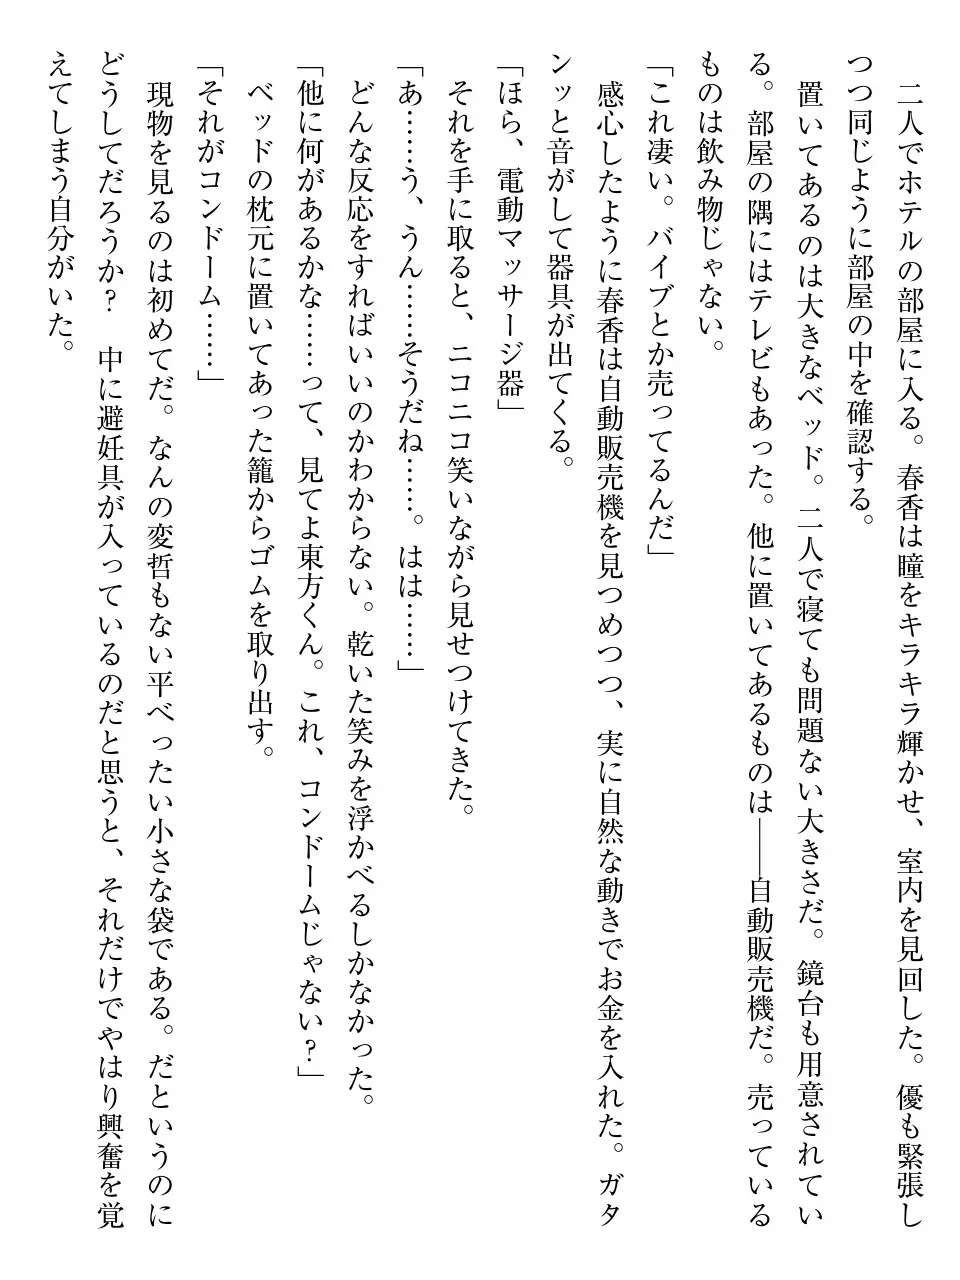 二人でホテルの部屋に入る。春香は瞳をキラキラ輝かせ、室内を見回した。優も緊張し
つつ同じように部屋の中を確認する。
　置いてあるのは大きなベッド。二人で寝ても問題ない大きさだ。鏡台も用意されてい
る。部屋の隅にはテレビもあった。他に置いてあるものは――自動販売機だ。売っている
ものは飲み物じゃない。
「これ凄い。バイブとか売ってるんだ」
　感心したように春香は自動販売機を見つめつつ、実に自然な動きでお金を入れた。ガタ
ンッと音がして器具が出てくる。
「ほら、電動マッサージ器」
　それを手に取ると、ニコニコ笑いながら見せつけてきた。
「あ……う、うん……そうだね……。はは……」
　どんな反応をすればいいのかわからない。乾いた笑みを浮かべるしかなかった。
「他に何があるかな……って、見てよ東方くん。これ、コンドームじゃない？」
　ベッドの枕元に置いてあった籠からゴムを取り出す。
「それがコンドーム……」
　現物を見るのは初めてだ。なんの変哲もない平べったい小さな袋である。だというのに
どうしてだろうか？　中に避妊具が入っているのだと思うと、それだけでやはり興奮を覚
えてしまう自分がいた。